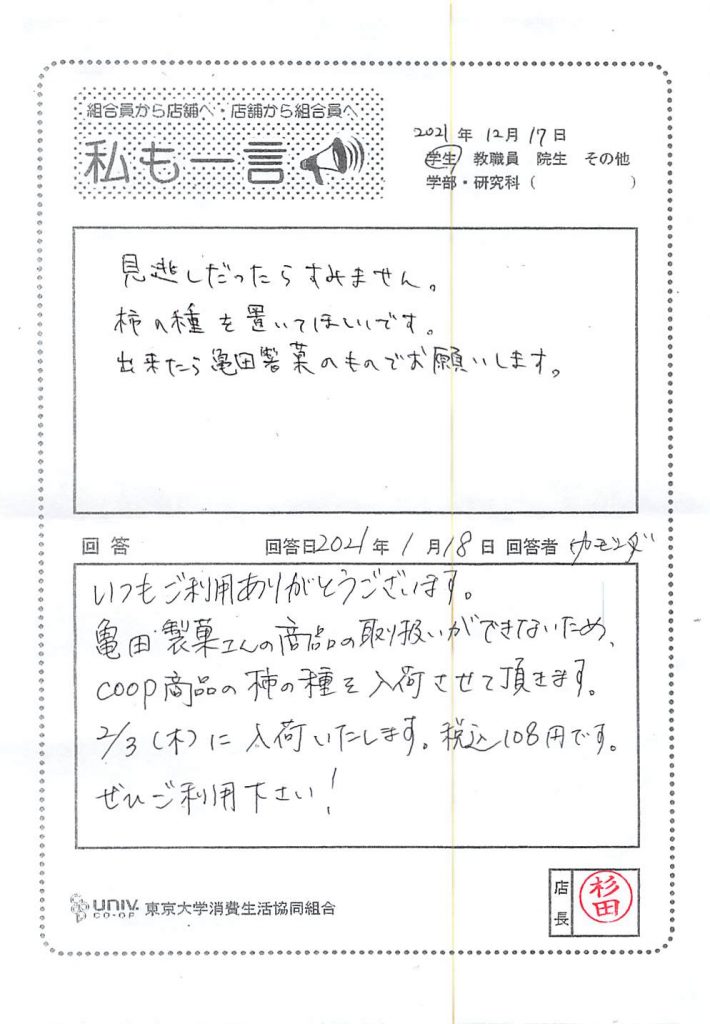 組合員から店舗へ・店舗から組合員へ
私も一言
2021年 12月 17日
学生 教職員 院生 その他
学部・研究科（ ）
見逃しだったらすみません。
柿の種を置いてほしいです。
出来たら亀田製菓のものでお願いします。
回答 回答日2021年 1月18日 回答者
いつもご利用ありがとうございます。
亀田製菓さんの商品の取り扱いができないため、
coop商品の柿の種を入荷させて頂きます。
2/3（木）に入荷いたします。税込108円です。
ぜひご利用下さい！
UNIV. CO-OP 東京大学消費生活協同組合
店長 杉田